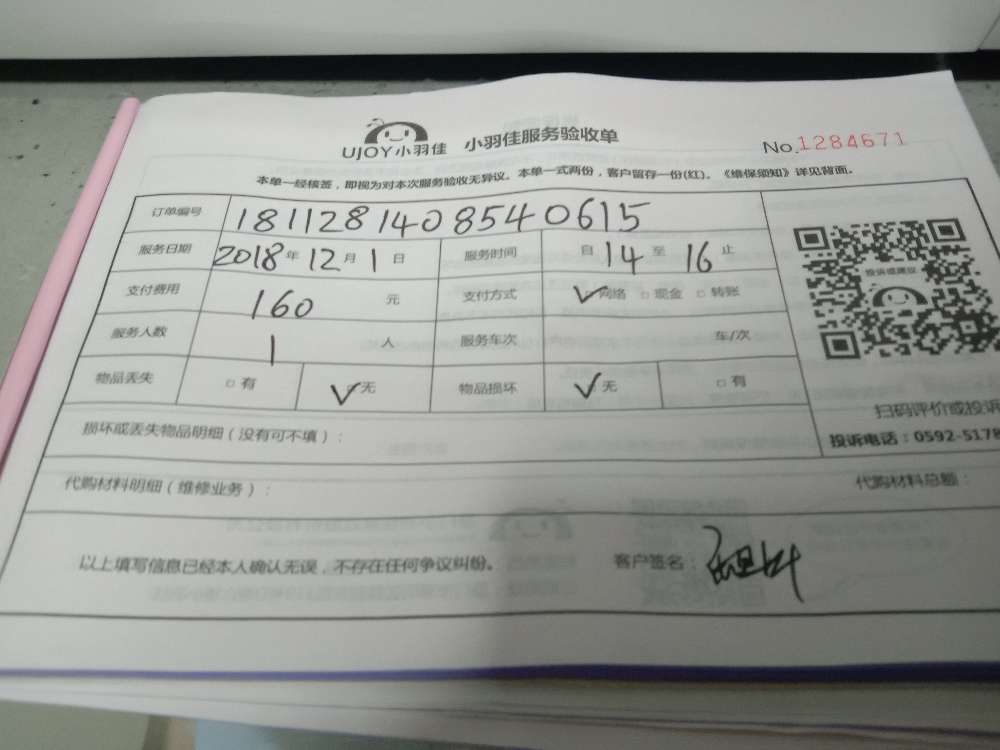 UJOY小羽佳 小羽佳服务验收单 No.1284671
本单一经核签，即视为对本次服务验收无异议。本单一式两份，客户留存一份(红)。《维保须知》详见背面。
订单编号 181128140854 0615
服务日期 2018年12月1日 服务时间 自14至16止
支付费用 160元 支付方式 ✓网络 □现金 □转账
投诉或建议
服务人数 1人 服务车次 车/次
物品丢失 □有 ✓无 物品损坏 ✓无 □有
扫码评价或投诉
损坏或丢失物品明细（没有可不填）：
投诉电话：0592-5178
代购材料明细（维修业务）： 代购材料总额：
以上填写信息已经本人确认无误，不存在任何争议纠纷。 客户签名：